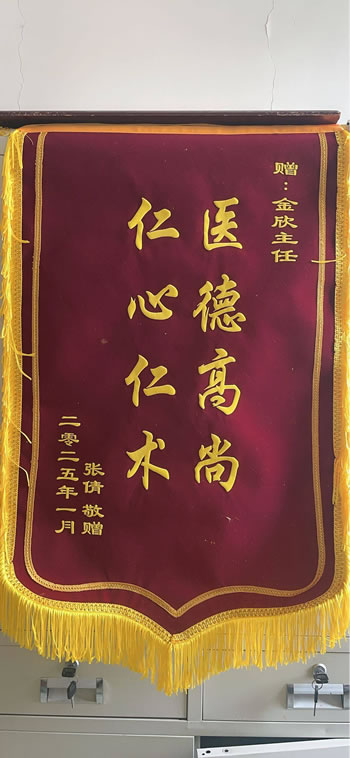 赠：金欣主任
医德高尚
仁心仁术
张倩 敬赠
二零二五年一月